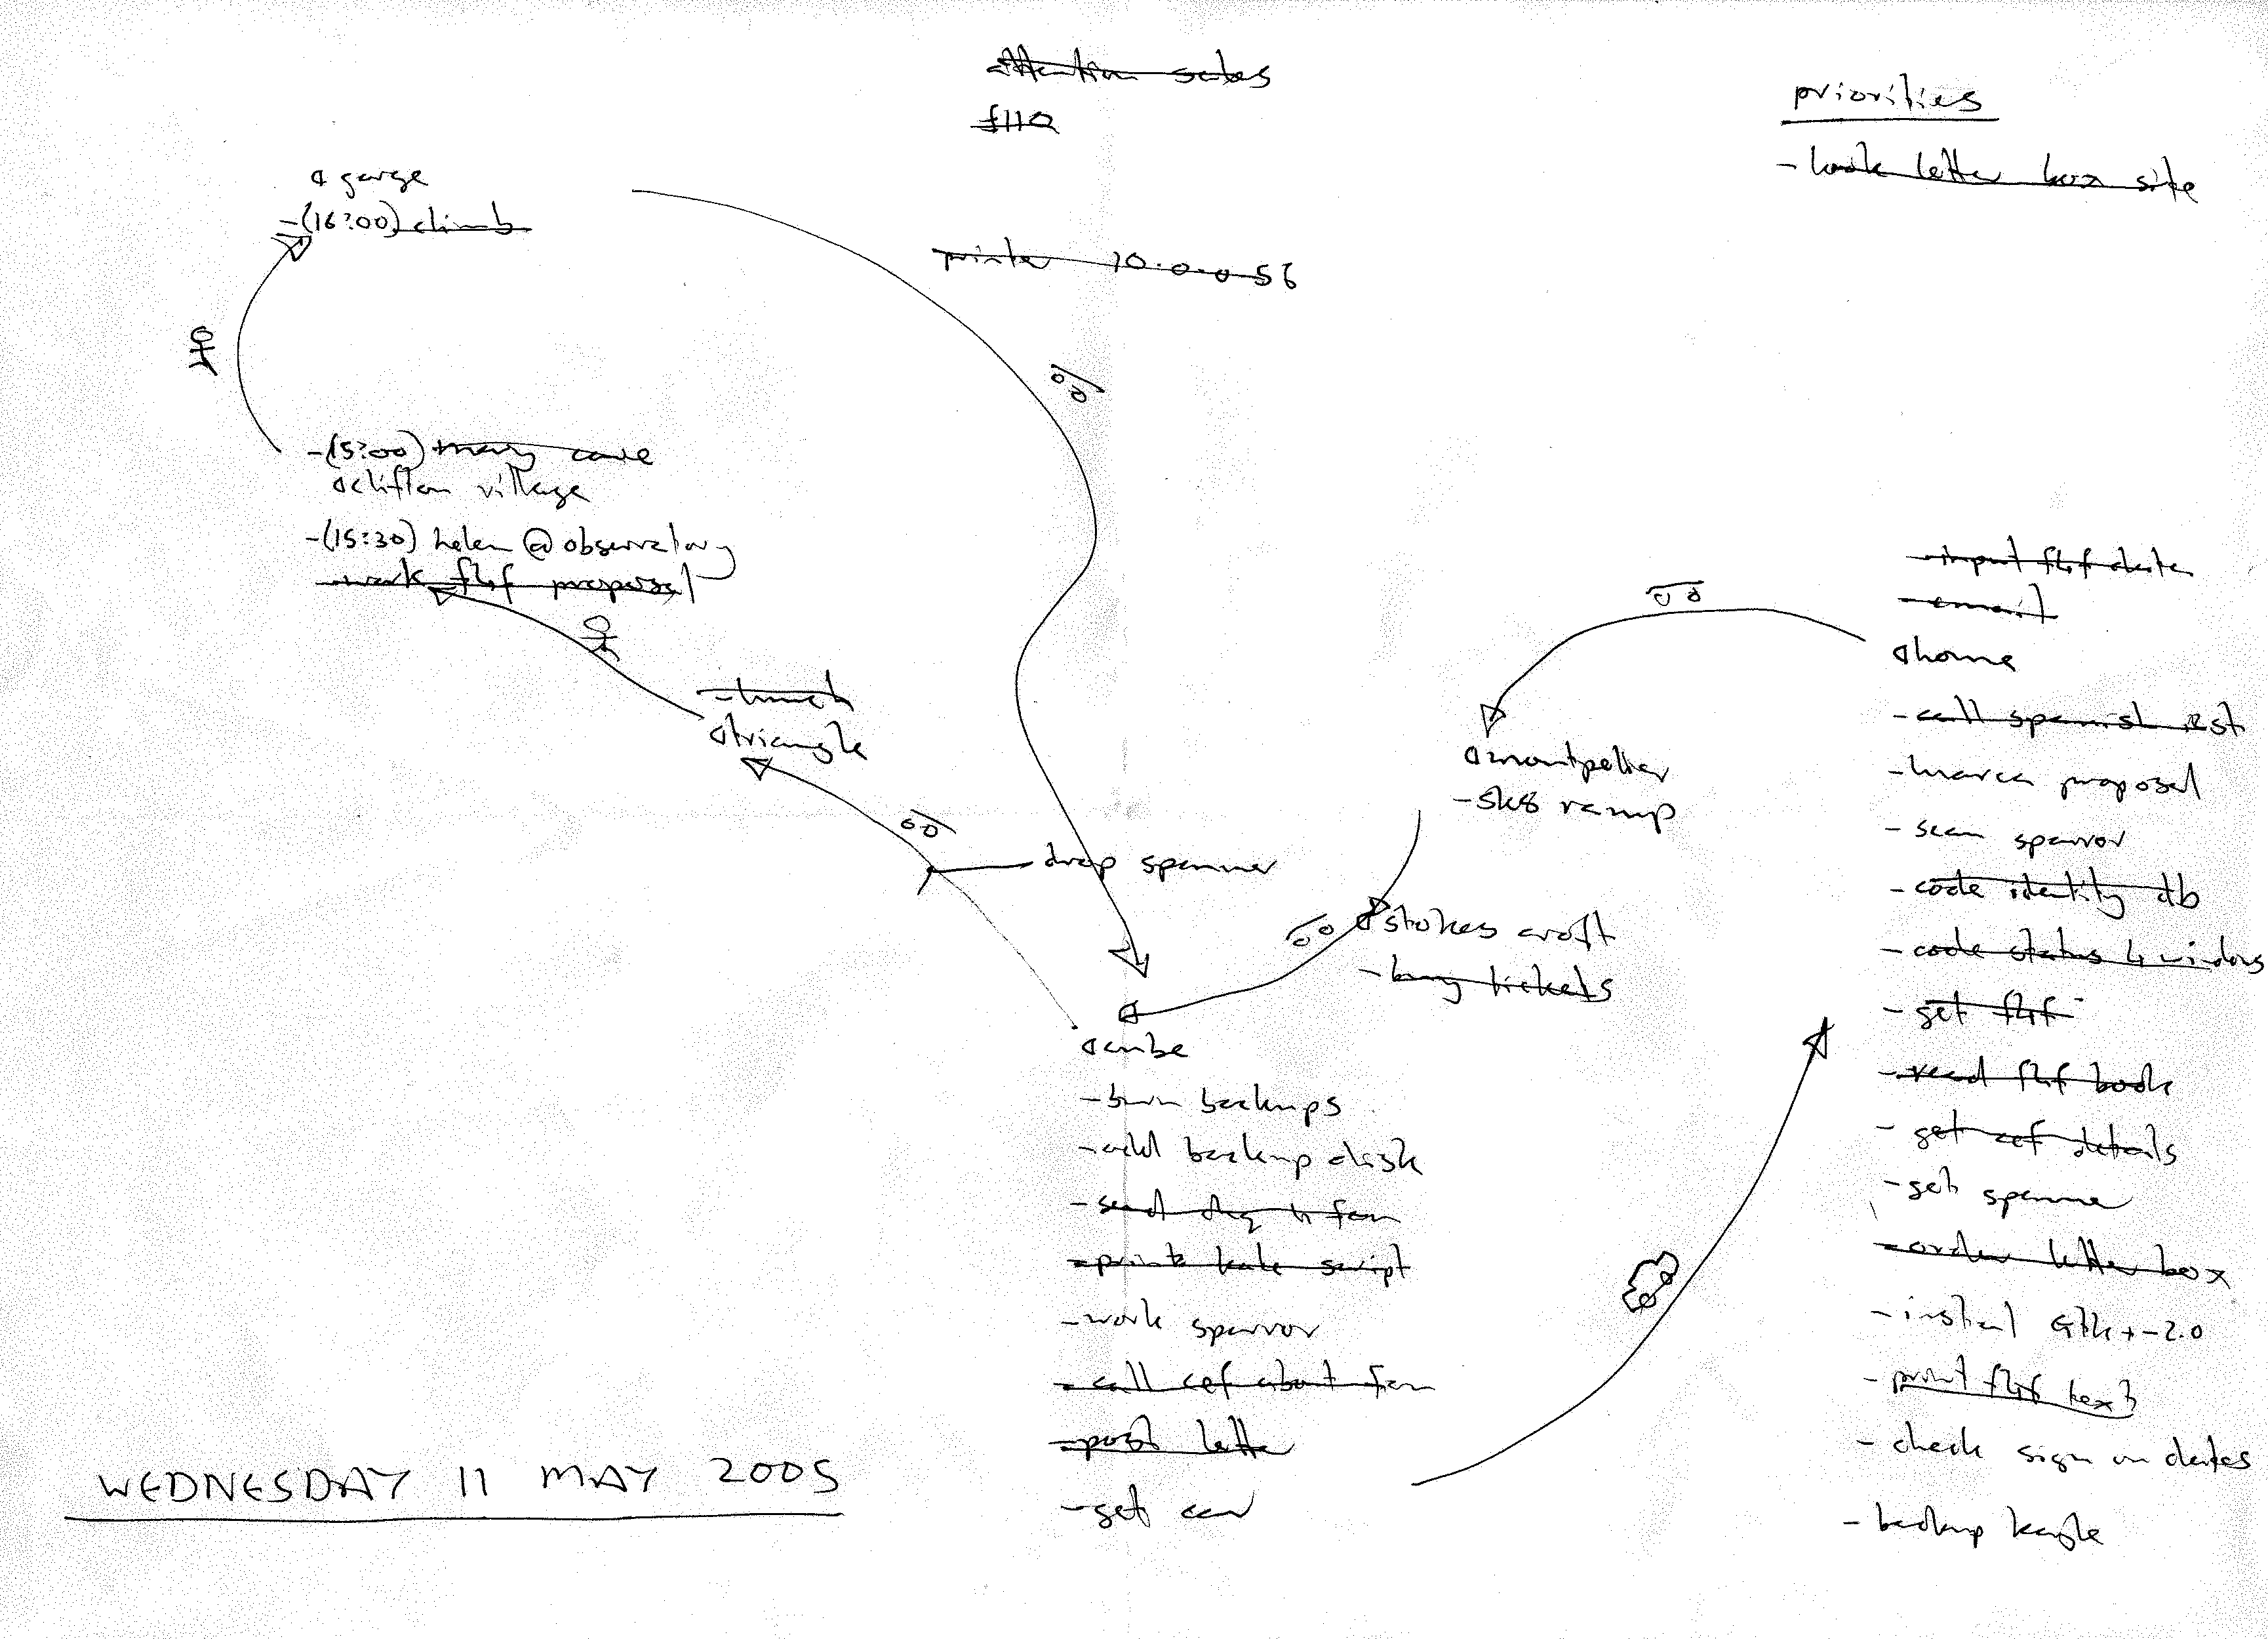 attention
f110
priorities
- book letter box site
gorge
- (16:00) climb
printer 10.0.0.56
- (15:00) cave
clifton village
- (15:30) helen @ observatory
- work f4f proposal
- lunch
triangle
drop spanner
- input f4f data
- email
home
- call spanish rest.
- proposal
- scan sparror
- code identity db
- code status 4 windows
- get f4f
- read f4f book
- get cef details
- get spanner
- order letter box
- install Gtk+-2.0
- print f4f text
- check sign on dates
- backup
montpelier
- sk8 ramp
stokes croft
- buy tickets
cube
- burn backups
- add backup disk
- send
- print kate script
- work sparror
- call cef about fan
- post letter
- get car
WEDNESDAY 11 MAY 2005